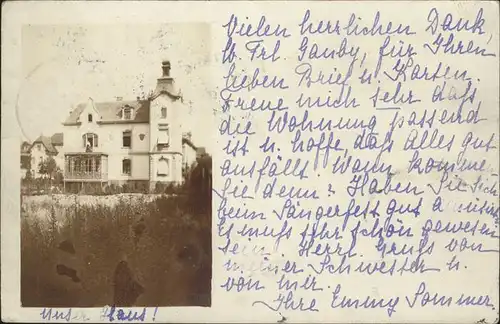 Vielen herrlichen Dank,
lb. Frl. Gauby, für Ihren
lieben Brief u. Karten.
Freue mich sehr daß
die Wohnung passend
ist u. hoffe, daß Alles gut
ausfällt. Wann kommen
Sie denn? Haben Sie Sich
beim Sängerfest gut amüsirt
muß sehr schön gewesen
sein. Herzl. Gruß von
meiner Schwester u.
von mir.
Ihre Emmy Sommer.
unser Haus!